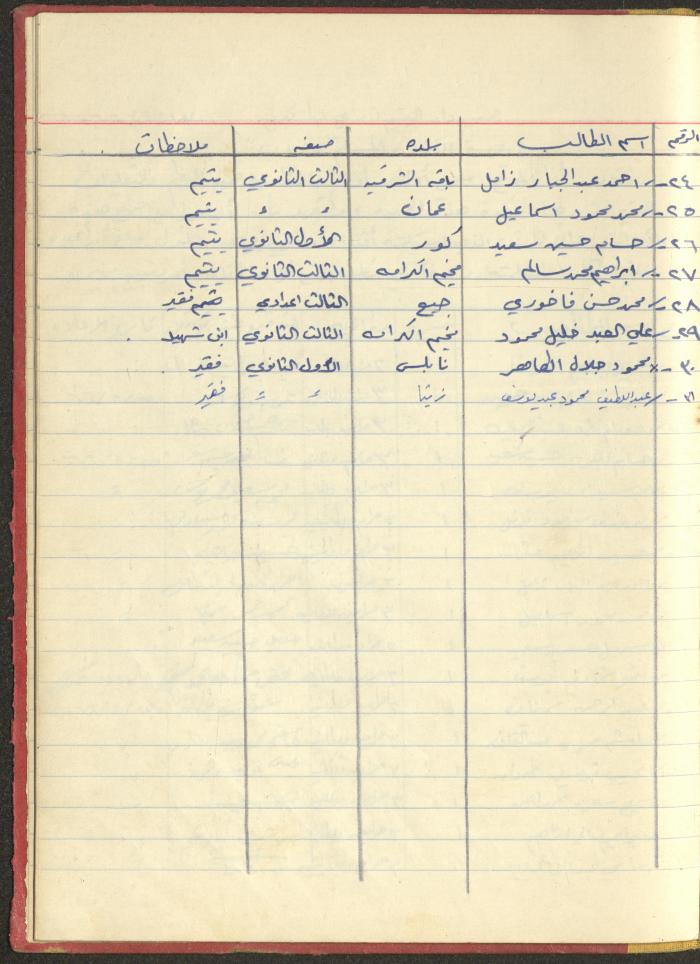 الرقم اسم الطالب بلده صفه ملاحظات
٢٤- احمد عبدالجبار زامل باقه الشرقيه الثالث الثانوي يتيم
٢٥- محمد محمود اسماعيل عمان ء ء يتيم
٢٦- حسام حسين سعيد كور الأول الثانوي يتيم
٢٧- ابراهيم محمد سالم مخيم الكرامه الثالث الثانوي يتيم
٢٨- محمد حسن فاخوري جبع الثالث اعدادي يتيم فقير
٢٩- علي العبد خليل محمود مخيم الكرامه الثالث الثانوي ابن شهيد
٣٠- محمود جلال الطاهر نابلس الأول الثانوي فقير
٣١- عبداللطيف محمود عبد يوسف زيتا ء ء فقير